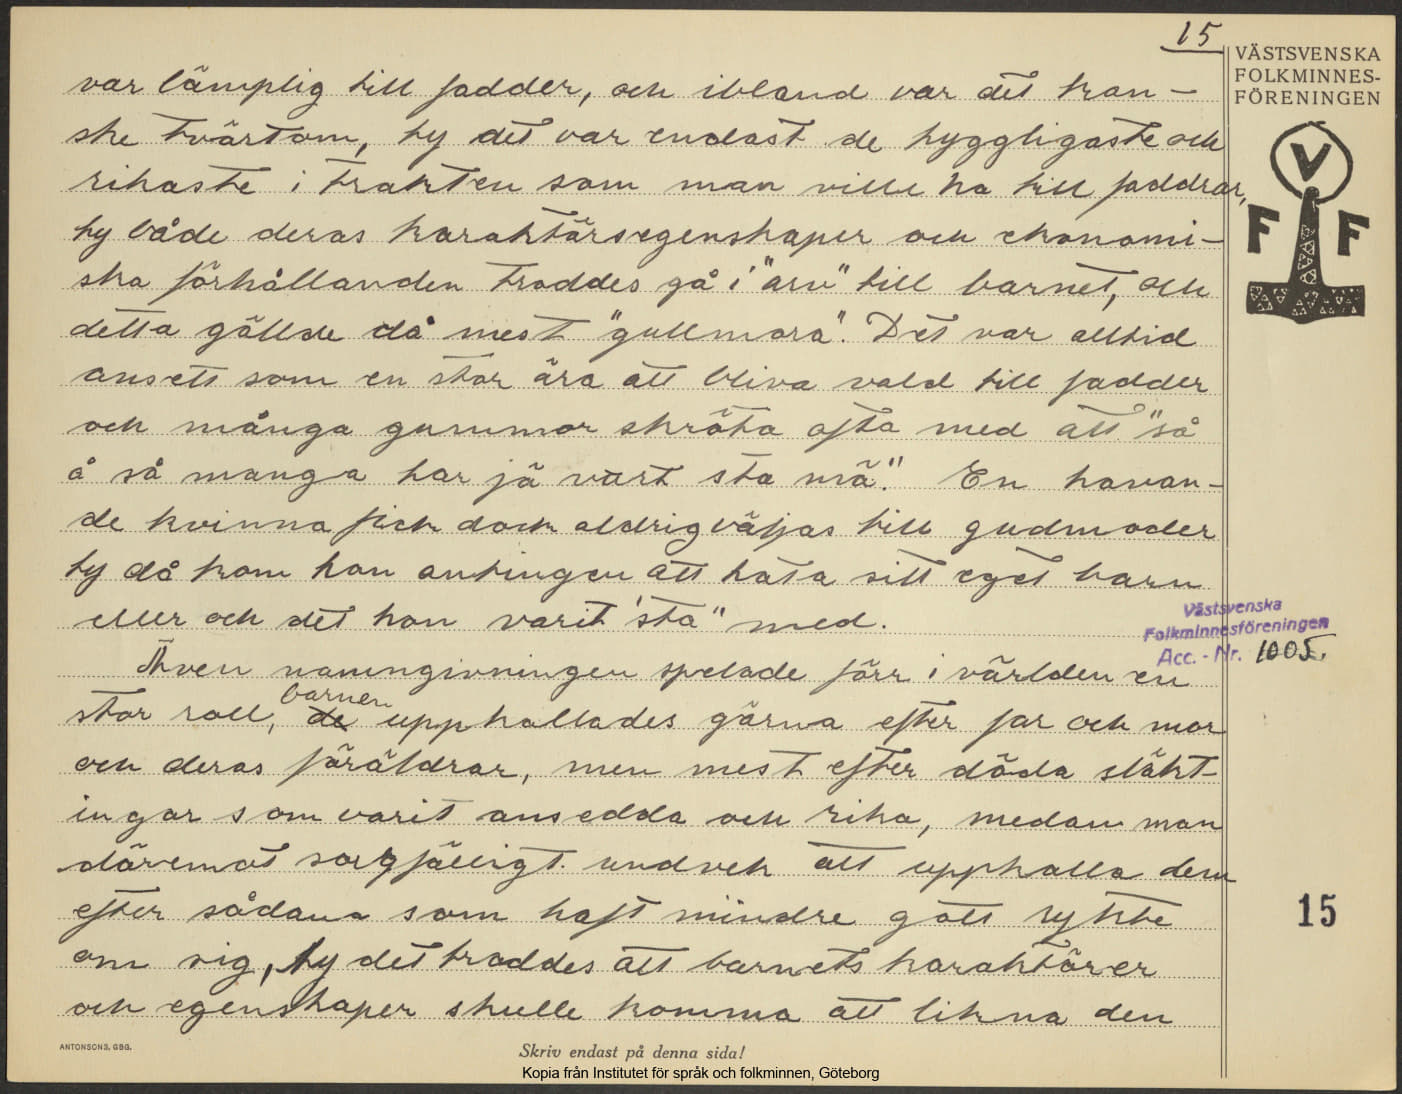 15
VÄSTSVENSKA
FOLKMINNES-
FÖRENINGEN
V
F F
var lämplig till fadder, och ibland var det kan-
ske tvärtom, ty det var endast de hyggligaste och
rikaste i trakten som man ville ha till faddrar,
ty både deras karaktärsegenskaper och ekonomi-
ska förhållanden troddes gå i "arv" till barnet, och
detta gällde då mest "gullmora". Det var alltid
ansets som en stor ära att bliva vald till fadder
och många gummor skröto ofta med att "så
å så manga har jä vart sta mä." En havan-
de kvinna fick dock aldrig väljas till gudmoder
ty då kom hon antingen att hata sitt eget barn
eller och det hon varit "sta" med.
Även namngivningen spelade förr i världen en
stor roll, de barnen upphallades gärna efter far och mor
och deras föräldrar, men mest efter döda släkt-
ingar som varit ansedda och rika, medan man
däremot sorgfälligt undvek att upphalla dem
efter sådana som haft mindre gott rykte
om sig, ty det troddes att barnets karaktärer
och egenskaper skulle komma att likna den
Västsvenska
Folkminnesföreningen
Acc. - Nr. 1005.
15
ANTONSONS, GBG.
Skriv endast på denna sida!
Kopia från Institutet för språk och folkminnen, Göteborg